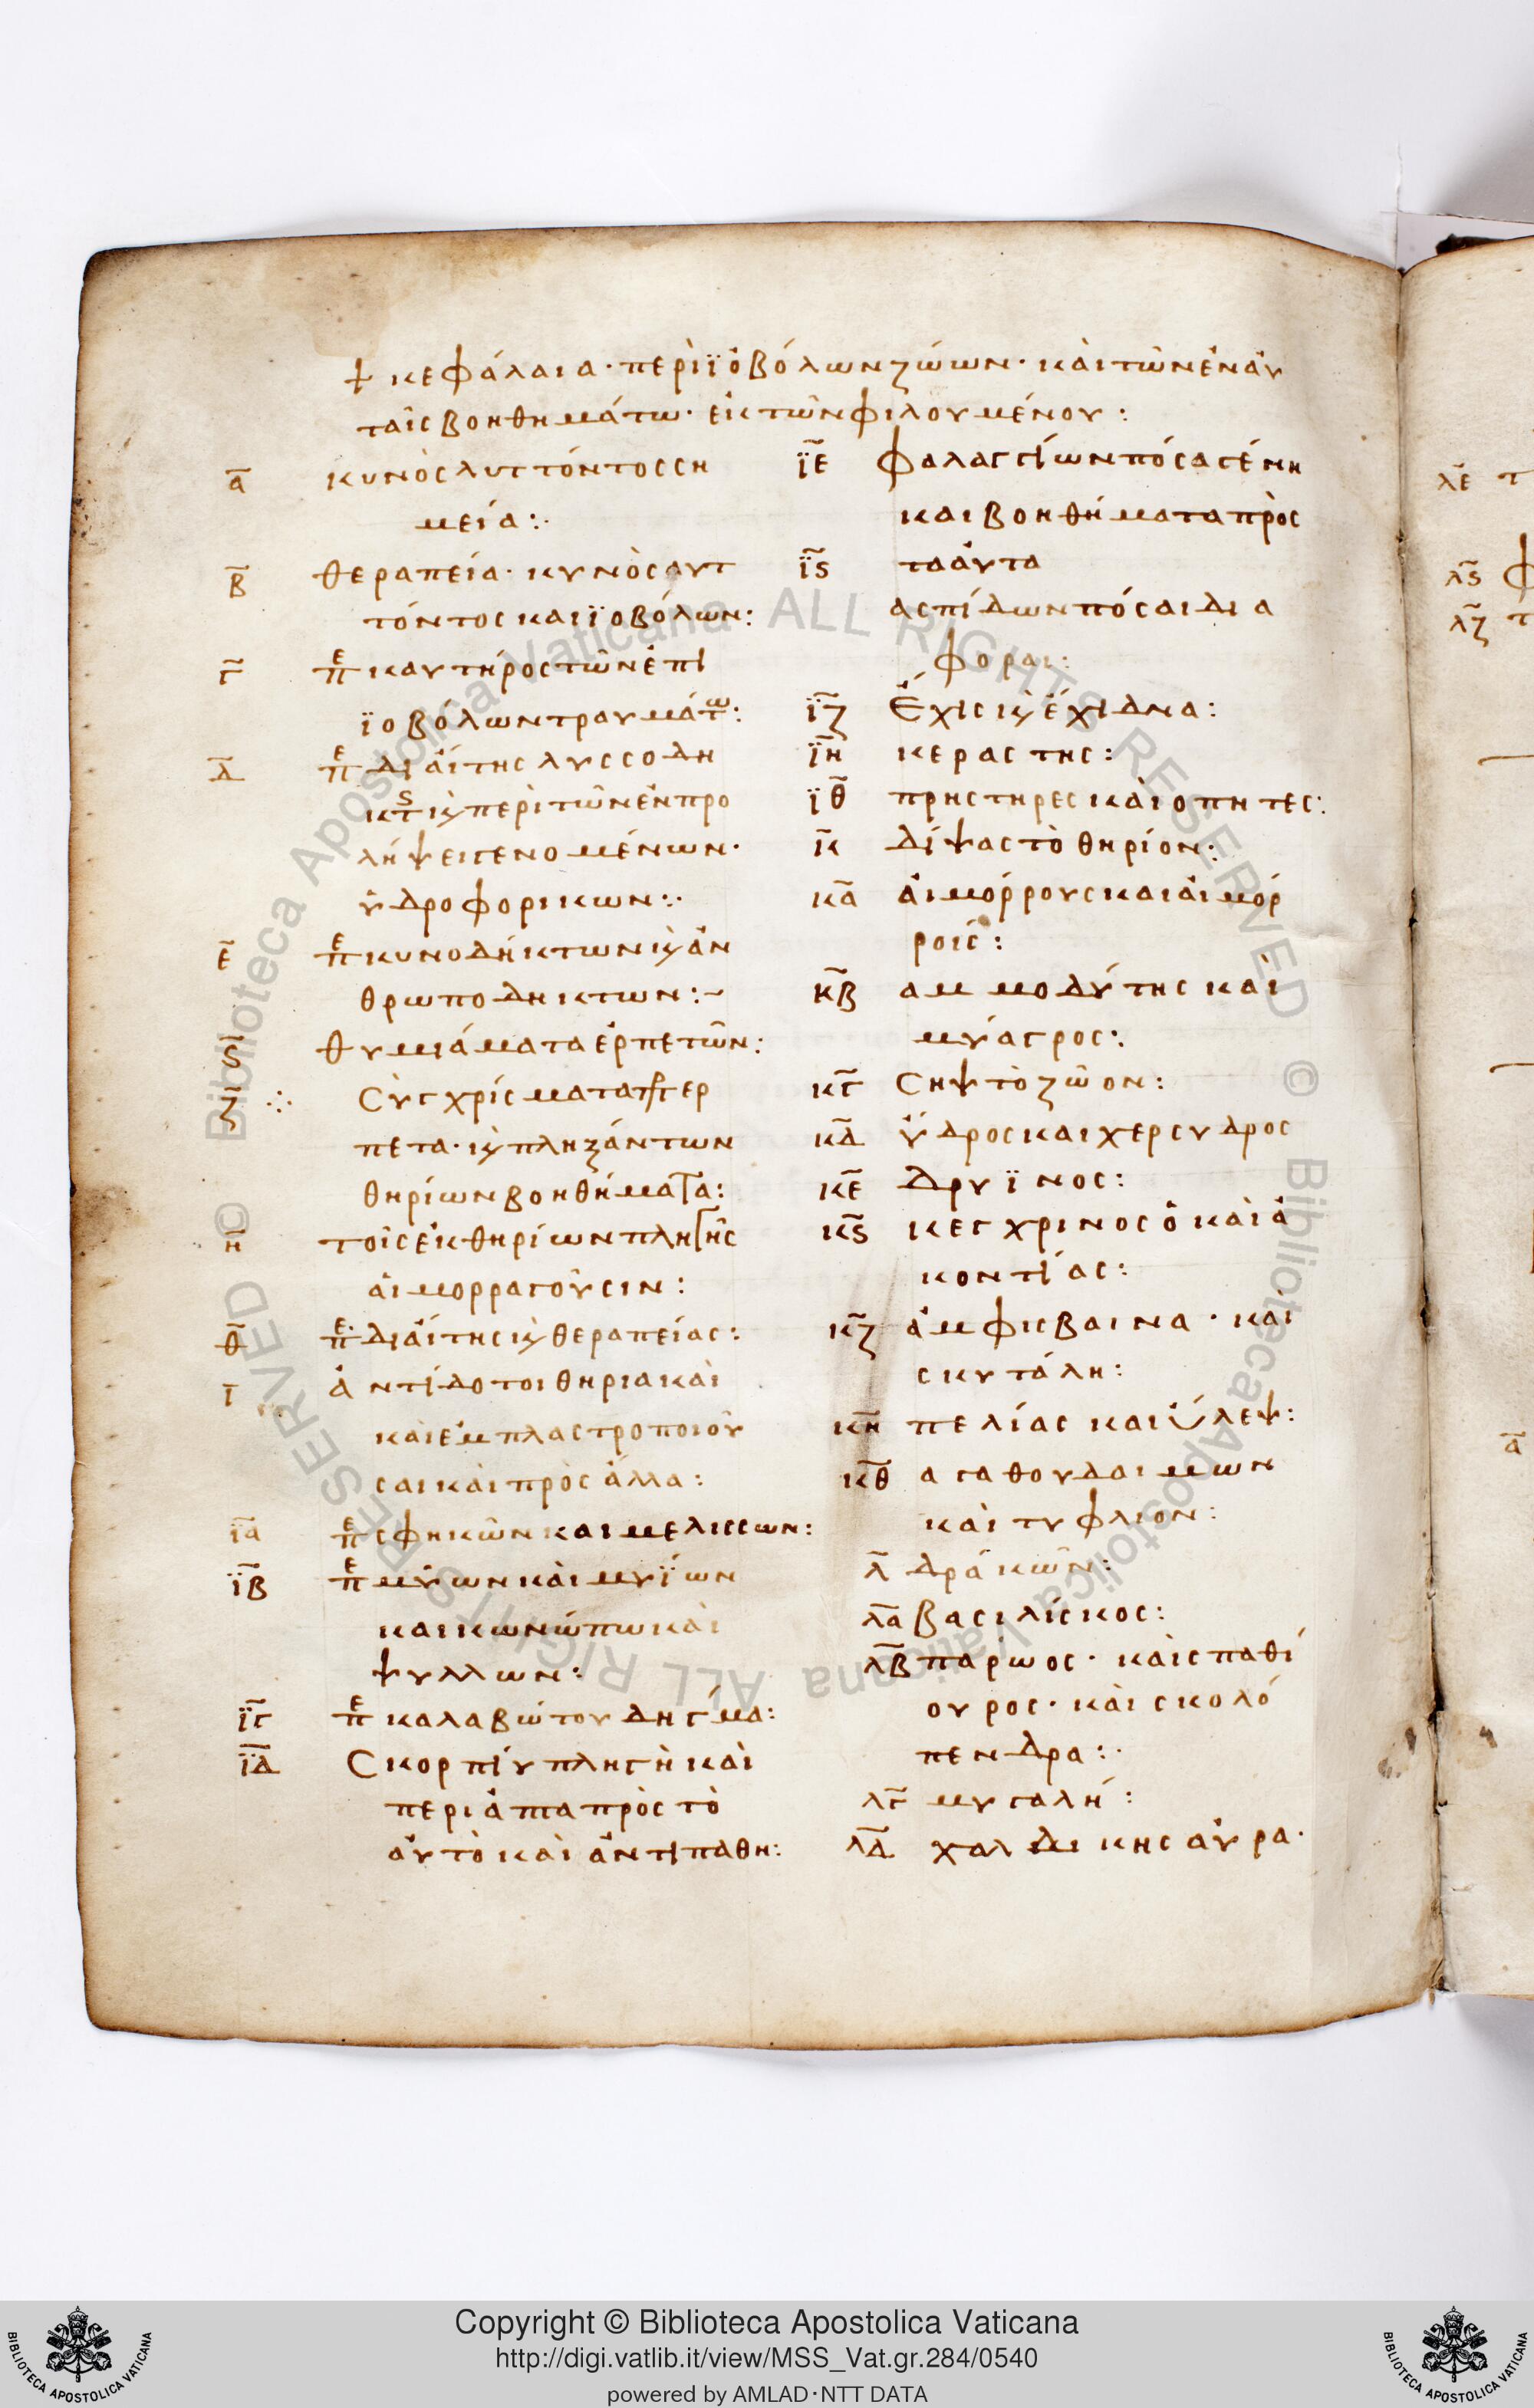 κεφάλαια· περὶ ϊοβόλων ζώων· καὶ τῶν ἐν αὐ
ταῖς βοηθημάτω· ἐκ τῶν φιλουμένου:
α κυνὸς λυττόντος ση
μεία:
β θεραπεία· κυνὸς λυτ
τόντος και ϊοβόλων:
γ πε καυτήρος τῶν ἐπὶ
ϊοβόλων τραυμάτω:
δ πε διαίτης λυσσοδη
κτ ϗ περὶ τῶν ἐν προ
λήψει γενομένων·
ὑδροφορικων:
ε πε κυνοδήκτων ϗ ἀν
θρωποδηκτων:
ς θυμιάματα ἑρπετῶν:
ζ Συγχρίσματα πρ ἑρ
πετα· ϗ πληξάντων
θηρίων βοηθήματα:
η τοῖς ἐκ θηρίων πληγῆς
αἱμορραγοῦσιν:
θ πε διαίτης ϗ θεραπείας:
ι ἀντίδοτοι θηριακαὶ
καὶ ἐμπλαστροποιοῦ
σαι καὶ πρὸς ἄλλα:
ϊα πε σφηκῶν και μελισσων:
ϊβ πε μύων καὶ μυϊων
και κωνώπω καὶ
ψυλλων:
ϊγ πε καλαβώτου δηγμα:
ϊδ Σκορπίυ πληγὴ καὶ
περίαπτα πρὸς τὸ
αὐτὸ καὶ ἀντιπαθη:
ϊε φαλαγγίων πόσα γένη
και βοηθήματα πρὸς
ϊς τα αυτα
ασπίδων πόσαι δια
φοραι:
ϊζ Ἔχις ϗ ἔχιδνα:
ϊη κεραστης:
ϊθ πρηστηρες καὶ οπητες:
κ δίψας τὸ θηρίον:
κα αἱμόρρους και αἱμόρ
ροις:
κβ αμμοδύτης καὶ
μύαγρος:
κγ Σηψ τὸ ζῶον:
κδ ὕδρος και χερσυδρος
κε Δρυϊνος:
κς κεγχρινος ὁ καὶ ἀ
κοντίας:
κζ ἀμφισβαινα· καὶ
σκυτάλη:
κη πελίας και ὕλεψ:
κθ αγαθουδαιμων
καὶ τυφλιον:
λ δράκων:
λα βασιλίσκος:
λβ παρωος· καὶ σπαθί
ουρος· καὶ σκολό
πενδρα:
λγ μυγαλή:
λδ χαλδικης αύρα·
λε τ
λς φ
λζ τ
α
Copyright © Biblioteca Apostolica Vaticana
http://digi.vatlib.it/view/MSS_Vat.gr.284/0540
powered by AMLAD·NTT DATA
BIBLIOTECA APOSTOLICA VATICANA
BIBLIOTECA APOSTOLICA VATICANA
© Biblioteca Apostolica Vaticana ALL RIGHTS RESERVED
© Biblioteca Apostolica Vaticana ALL RIGHTS RESERVED